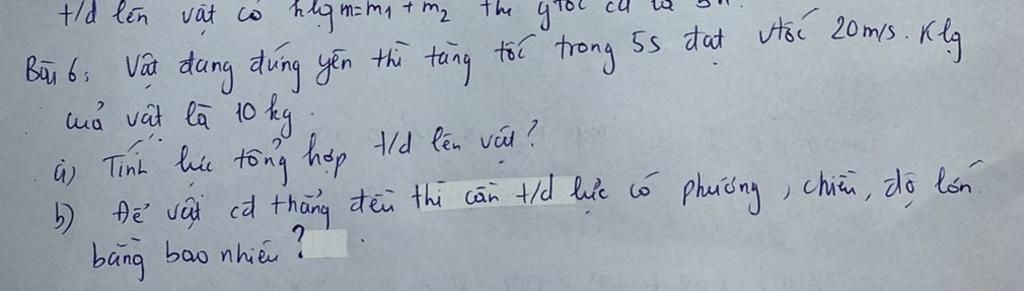 t/d lên vật có klg m=m1 + m2 thì gtốc cđ là
Bài 6: Vật đang đứng yên thì tăng tốc trong 5s đạt vtốc 20m/s. Klg
của vật là 10 kg.
a) Tính lực tổng hợp t/d lên vật?
b) Để vật cđ thẳng đều thì cần t/d lực có phương, chiều, độ lớn
bằng bao nhiêu?